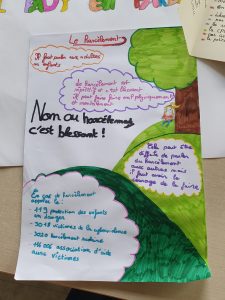 Le Harcèlement
Il faut parler aux adultes
ou enfants
Le harcèlement est
répétitif et est blessant
il peut faire mal physiquement
et mentalement
Non au harcèlement,
c'est blessant !
Cela peut être
difficile de parler
du harcèlement
aux autres mais
il faut avoir le
courage de le faire
En cas de harcèlement
appeler le :
- 119 protection des enfants
en danger
- 3018 victimes de cyberviolence
- 3020 harcèlement scolaire
- 116 006 association d'aide
aux victimes